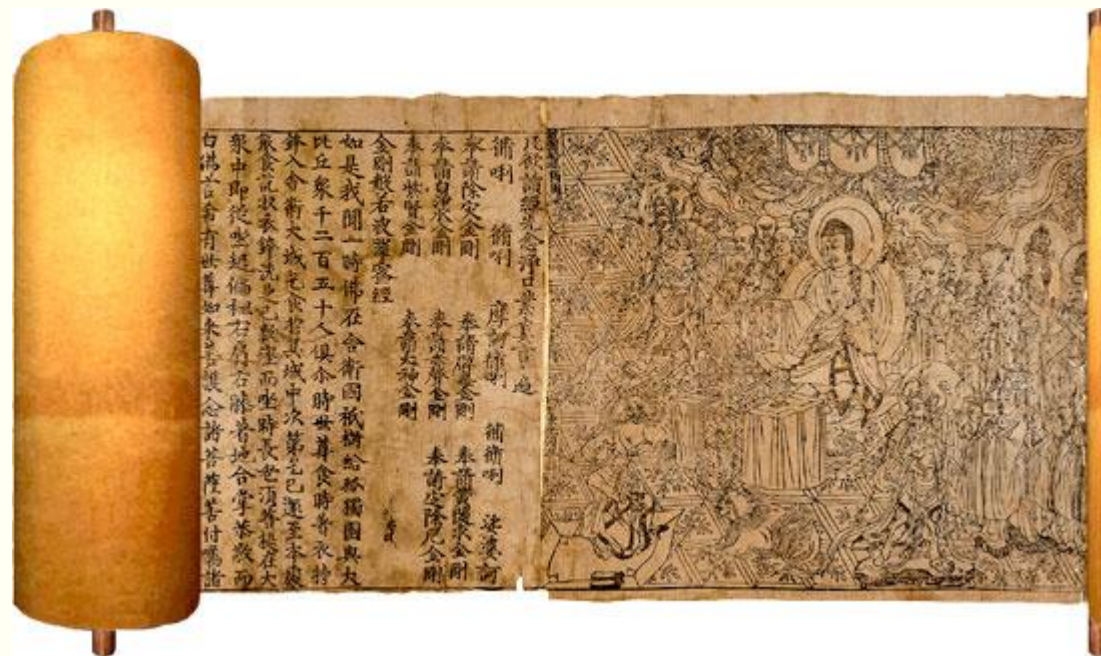 凡欲讀經先念淨口業真言一遍
脩唎 脩唎 摩訶脩唎 脩脩唎 娑婆訶
奉請除災金剛 奉請辟毒金剛 奉請黃隨求金剛
奉請白淨水金剛 奉請赤聲金剛 奉請定除厄金剛
奉請紫賢金剛 奉請大神金剛
金剛般若波羅蜜經
如是我聞一時佛在舍衛國祇樹給孤獨園與大
比丘衆千二百五十人俱尒時世尊食時著衣持
鉢入舍衛大城乞食於其城中次第乞已還至本處
飯食訖收衣鉢洗足已敷座而坐時長老湏菩提在大
衆中即從座起偏袒右肩右膝著地合掌恭敬而
白佛言希有世尊如來善護念諸菩薩善付囑諸